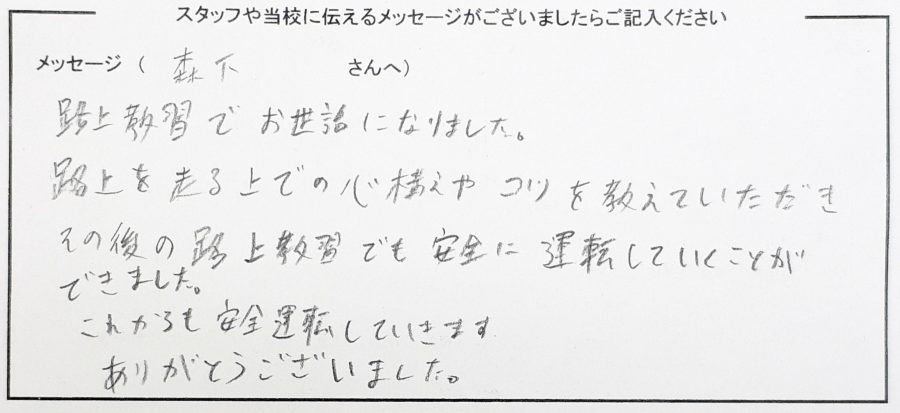 スタッフや当校に伝えるメッセージがございましたらご記入ください
メッセージ ( 森下 さんへ)
路上教習でお世話になりました。
路上を走る上での心構えやコツを教えていただき
その後の路上教習でも安全に運転していくことが
できました。
これからも安全運転していきます
ありがとうございました。